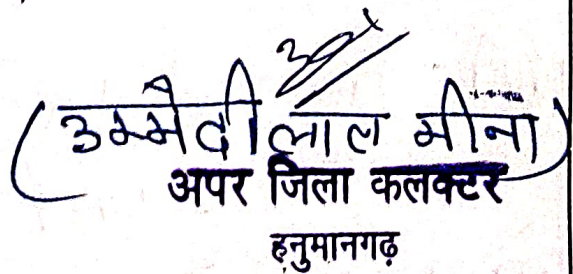 (उम्मैदी लाल मीना)
अपर जिला कलक्टर
हनुमानगढ़